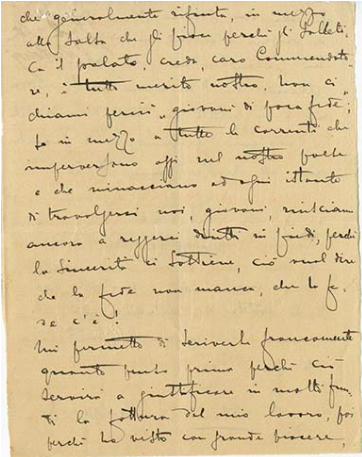 che generalmente rifiuta, in mezzo
alla salsa che gli piace perché gli solleti-
ca il palato, credo, caro Commendato-
re, è tutto merito nostro, non ci
chiami perciò "giovani di poca fede",
se in mezzo a tutte le correnti che
imperversano oggi nel nostro
e che minacciano ad ogni istante
di travolgerci noi, giovani, riusciamo
ancora a reggerci diritti in piedi, perché
la Sincerità ci sostiene, ciò vuol dire
che la fede non manca, che la fe-
de c'è!
Mi permetto di scriverle francamente
quanto penso prima perché ciò
servirà a giustificare in molti pun-
ti la fattura del mio lavoro, poi
perché ho visto con grande piacere,